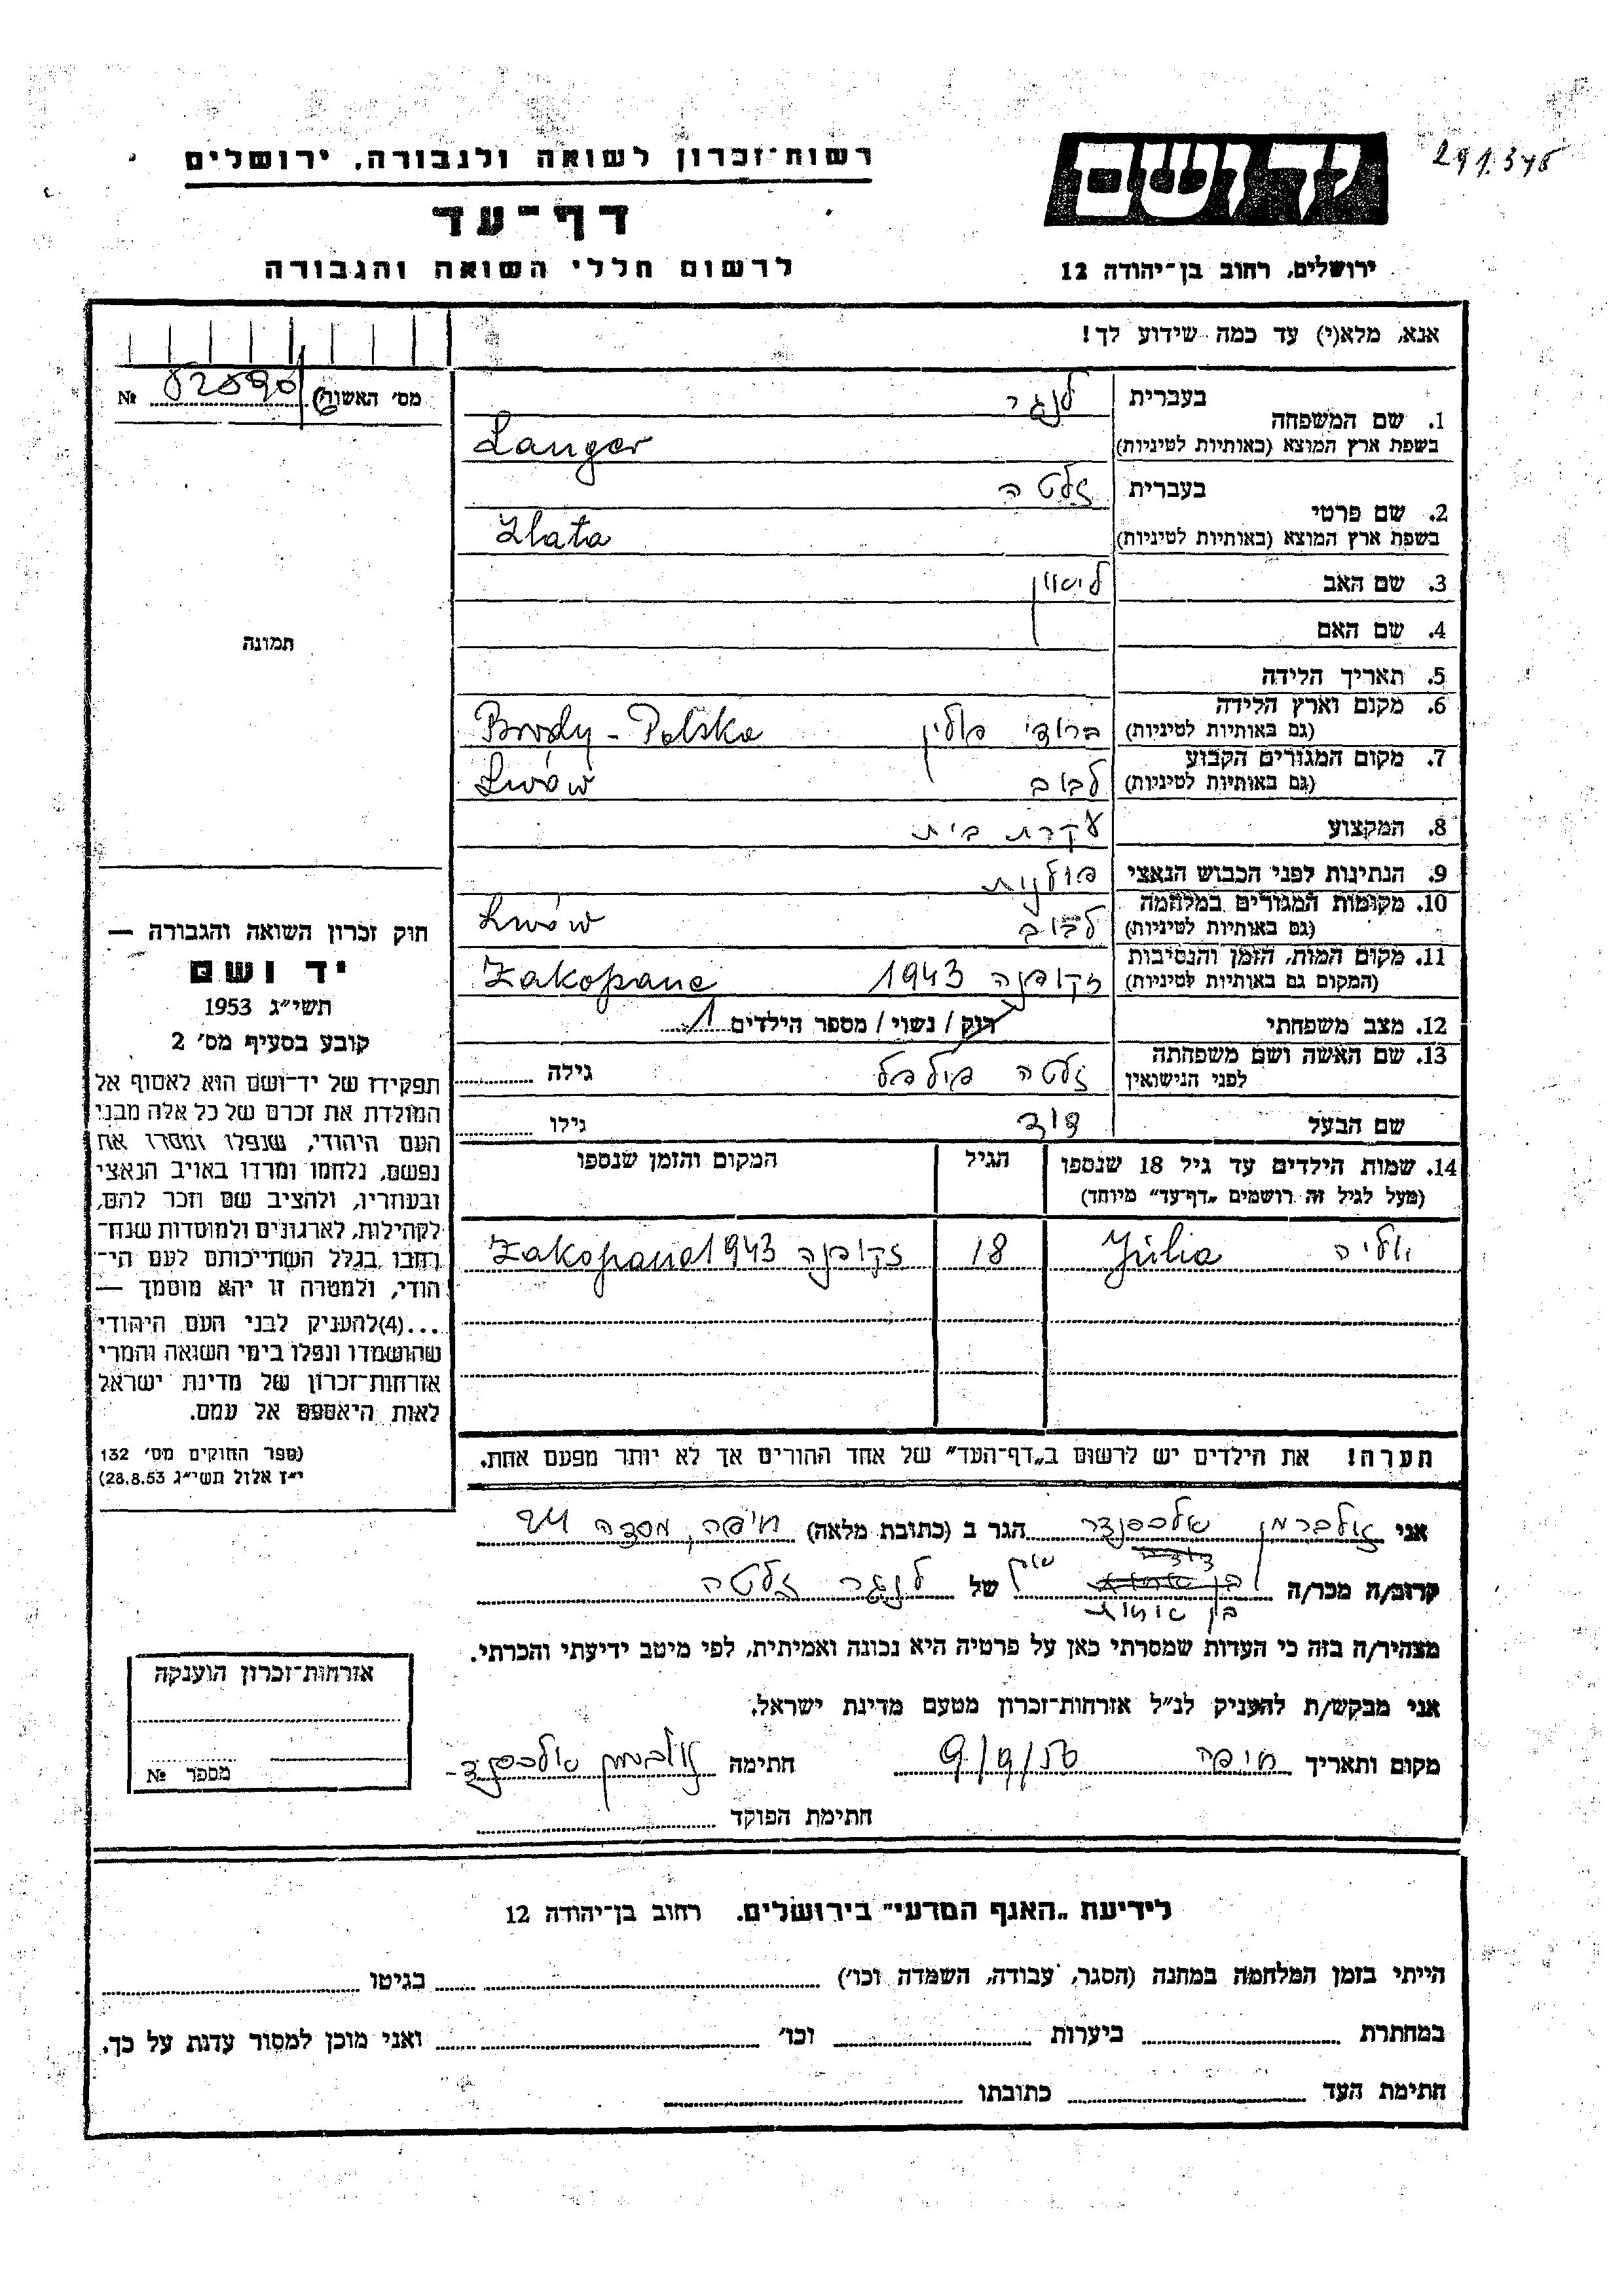 291.345
יד ושם
רשות־זכרון לשואה ולגבורה, ירושלים
דף־עד
לרשום חללי השואה והגבורה
ירושלים, רחוב בן־יהודה 12
אנא, מלא(י) עד כמה שידוע לך!
מס' האשור № 02590
1. שם המשפחה
בעברית לנגר
בשפת ארץ המוצא (באותיות לטיניות) Langer
2. שם פרטי
בעברית זלטה
בשפת ארץ המוצא (באותיות לטיניות) Zlata
3. שם האב
4. שם האם
תמונה
5. תאריך הלידה
6. מקום וארץ הלידה
(גם באותיות לטיניות) ברודי פולין Brody - Polska
7. מקום המגורים הקבוע
(גם באותיות לטיניות) לבוב Lwów
8. המקצוע עקרת בית
9. הנתינות לפני הכבוש הנאצי פולנית
10. מקומות המגורים במלחמה
(גם באותיות לטיניות) לבוב Lwów
11. מקום המות, הזמן והנסיבות
(המקום גם באותיות לטיניות) זקופנה 1943 Zakopane
12. מצב משפחתי רוק / נשוי / מספר הילדים 1
13. שם האשה ושם משפחתה
לפני הנישואין זלטה גילה
שם הבעל דוד גילו
14. שמות הילדים עד גיל 18 שנספו הגיל המקום והזמן שנספו
(מעל לגיל זה רושמים „דף־עד" מיוחד)
יוליה Júlia 18 זקופנה 1943 Zakopane
חוק זכרון השואה והגבורה —
יד ושם
תשי״ג 1953
קובע בסעיף מס' 2
תפקידו של יד־ושם הוא לאסוף אל
המולדת את זכרם של כל אלה מבני
העם היהודי, שנפלו ומסרו את
נפשם, נלחמו ומרדו באויב הנאצי
ובעוזריו, ולהציב שם וזכר להם,
לקהילות, לארגונים ולמוסדות שנח־
רבו בגלל השתייכותם לעם הי־
הודי, ולמטרה זו יהא מוסמך —
...(4)להעניק לבני העם היהודי
שהושמדו ונפלו בימי השואה והמרי
אזרחות־זכרון של מדינת ישראל
לאות היאספם אל עמם.
(ספר החוקים מס' 132
י״ז אלול תשי״ג 28.8.53)
הערה! את הילדים יש לרשום ב„דף־העד" של אחד ההורים אך לא יותר מפעם אחת.
אני זילברמן אלכסנדר הגר ב (כתובת מלאה) חיפה, מסדה 24
קרוב/ה מכר/ה בן אחות של לנגר זלטה
מצהיר/ה בזה כי העדות שמסרתי כאן על פרטיה היא נכונה ואמיתית, לפי מיטב ידיעתי והכרתי.
אני מבקש/ת להעניק לנ״ל אזרחות־זכרון מטעם מדינת ישראל.
מקום ותאריך חיפה 9/9/56 חתימה זילברמן אלכסנדר
חתימת הפוקד
אזרחות־זכרון הוענקה
מספר №
לידיעת „האגף המדעי" בירושלים. רחוב בן־יהודה 12
הייתי בזמן המלחמה במחנה (הסגר, עבודה, השמדה וכו') בגיטו
במחתרת ביערות וכו' ואני מוכן למסור עדות על כך.
חתימת העד כתובתו